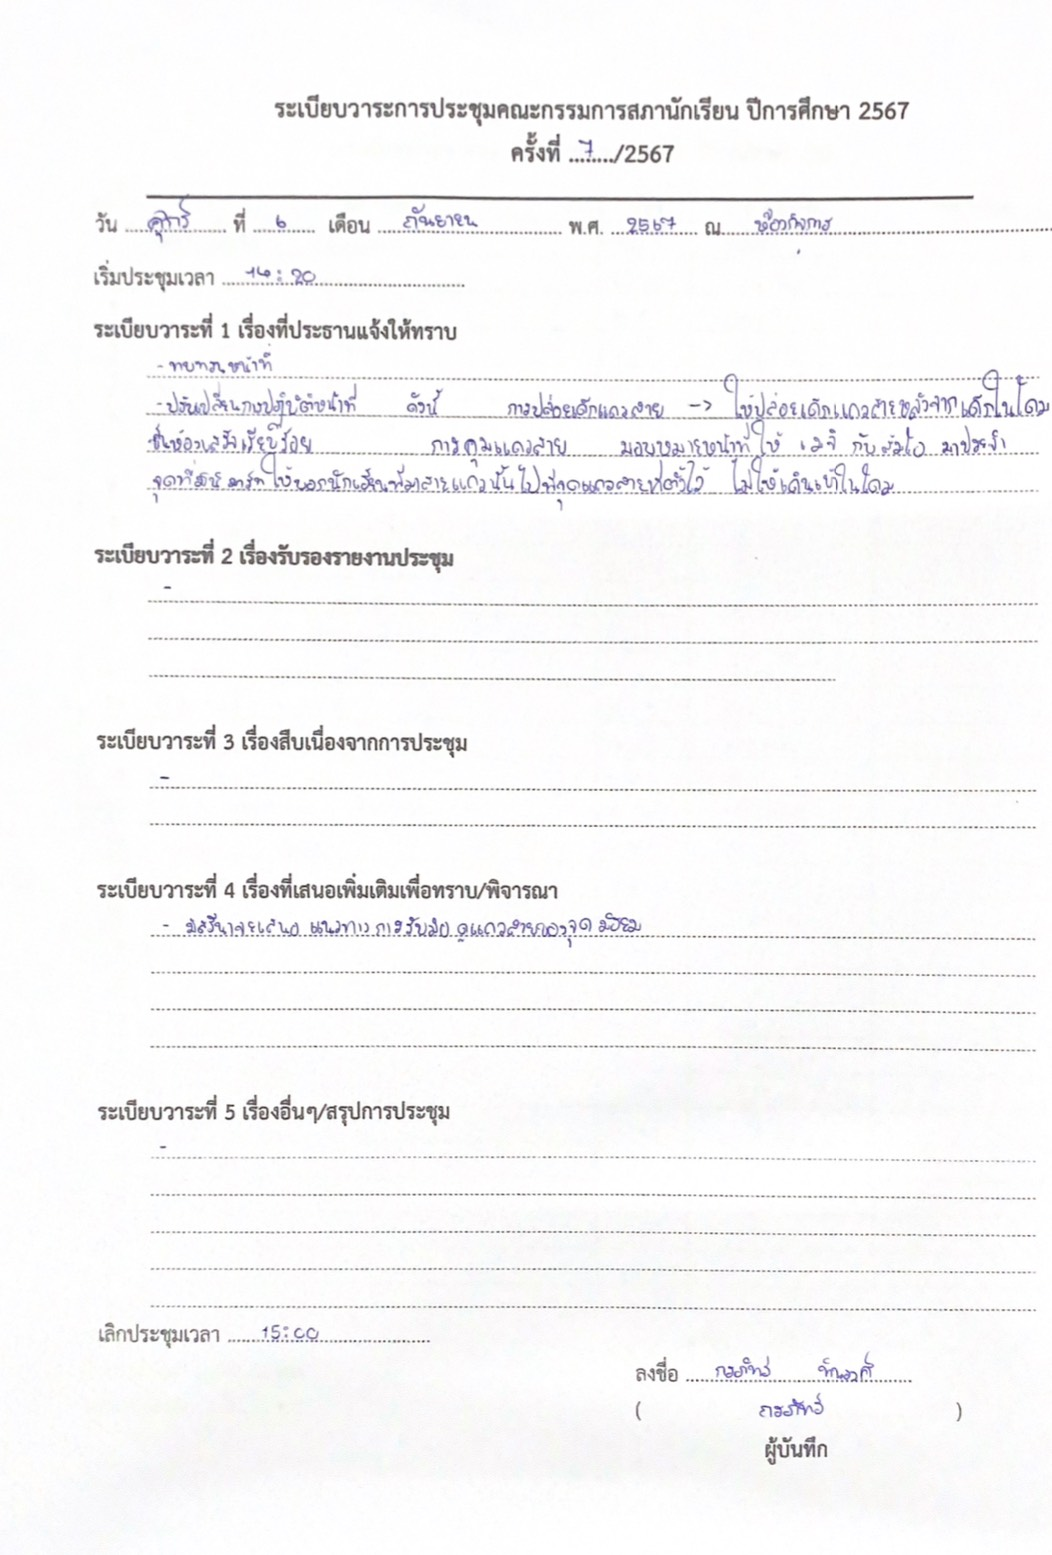 ระเบียบวาระการประชุมคณะกรรมการสภานักเรียน ปีการศึกษา 2567
ครั้งที่ ...7..../2567
วัน ศุกร์ ที่ ๖ เดือน กันยายน พ.ศ. 2567 ณ ห้องกิจการ
เริ่มประชุมเวลา 14:20
ระเบียบวาระที่ 1 เรื่องที่ประธานแจ้งให้ทราบ
- ทบทวนหน้าที่
- ปรับเปลี่ยนการปฏิบัติหน้าที่ ดังนี้ การปล่อยเด็กแถวสาย -> ให้ปล่อยเด็กแถวสายหลังจากเด็กในโดม
ขึ้นห้องเสร็จเรียบร้อย การคุมแถวสาย มอบหมายหน้าที่ให้ กับ มาประจำ
จุดที่ ให้บอกนักเรียนที่มาสายแถวนั้นไปที่จุดแถวสายที่ตั้งไว้ ไม่ให้เดินเข้าในโดม
ระเบียบวาระที่ 2 เรื่องรับรองรายงานประชุม
-
ระเบียบวาระที่ 3 เรื่องสืบเนื่องจากการประชุม
-
ระเบียบวาระที่ 4 เรื่องที่เสนอเพิ่มเติมเพื่อทราบ/พิจารณา
- เสนอ แนวทางการรับมือ ดูแถวสายของจุด มัธยม
ระเบียบวาระที่ 5 เรื่องอื่นๆ/สรุปการประชุม
-
เลิกประชุมเวลา 15:00
ลงชื่อ
( )
ผู้บันทึก